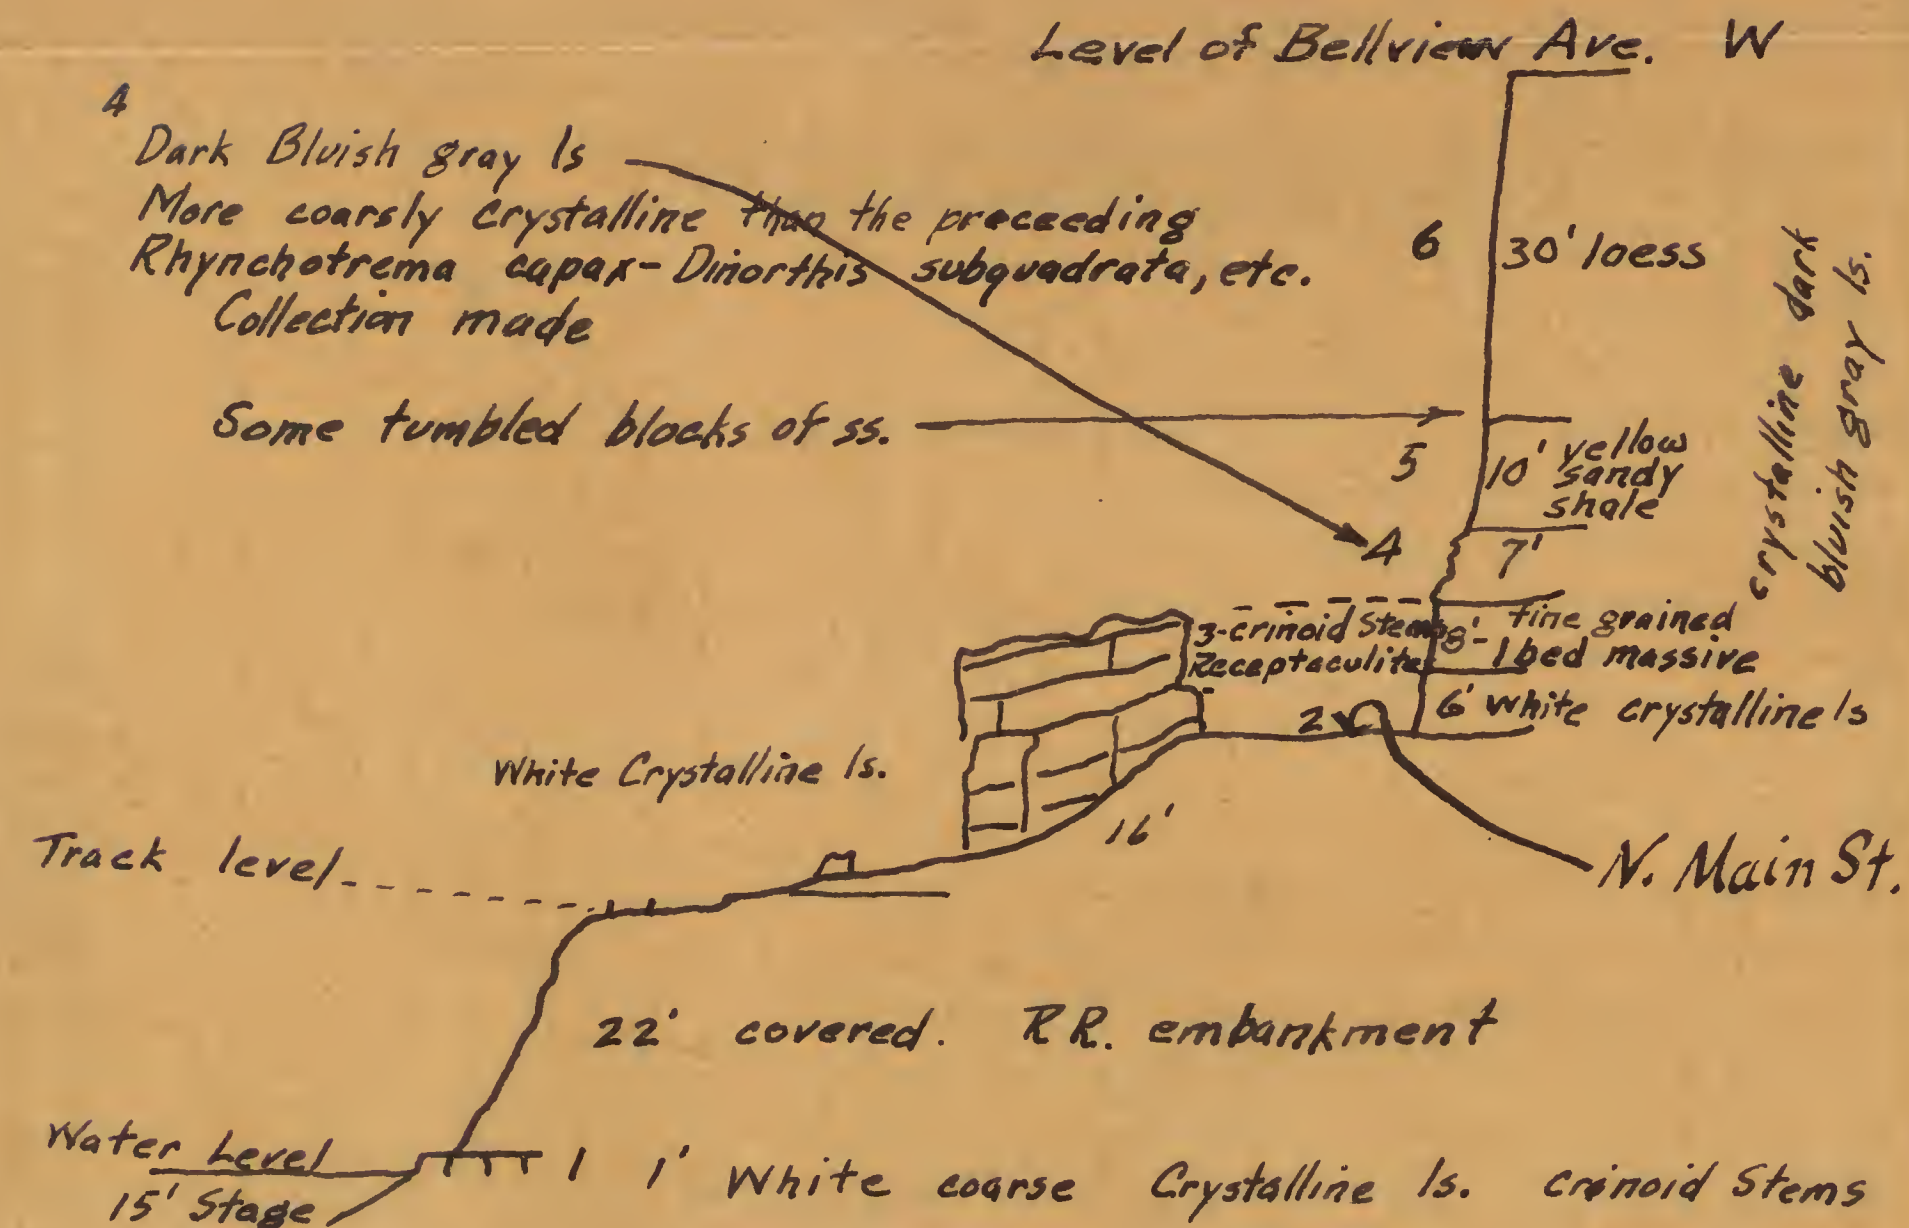 Level of Bellview Ave. W
4
Dark Bluish gray ls
More coarsly crystalline than the proceeding
Rhynchotrema capax - Dinorthis subquadrata, etc.
Collection made
6
30' loess
crystalline dark
bluish gray ls.
Some tumbled blocks of ss.
5
10' yellow
sandy
shale
4
7'
3-crinoid Stems
Receptaculites
8'- fine grained
1 bed massive
2
6' White crystalline ls
White Crystalline ls.
16'
N. Main St.
Track level
22' covered. RR. embankment
Water Level
15' Stage
1 1' White coarse Crystalline ls. crinoid Stems